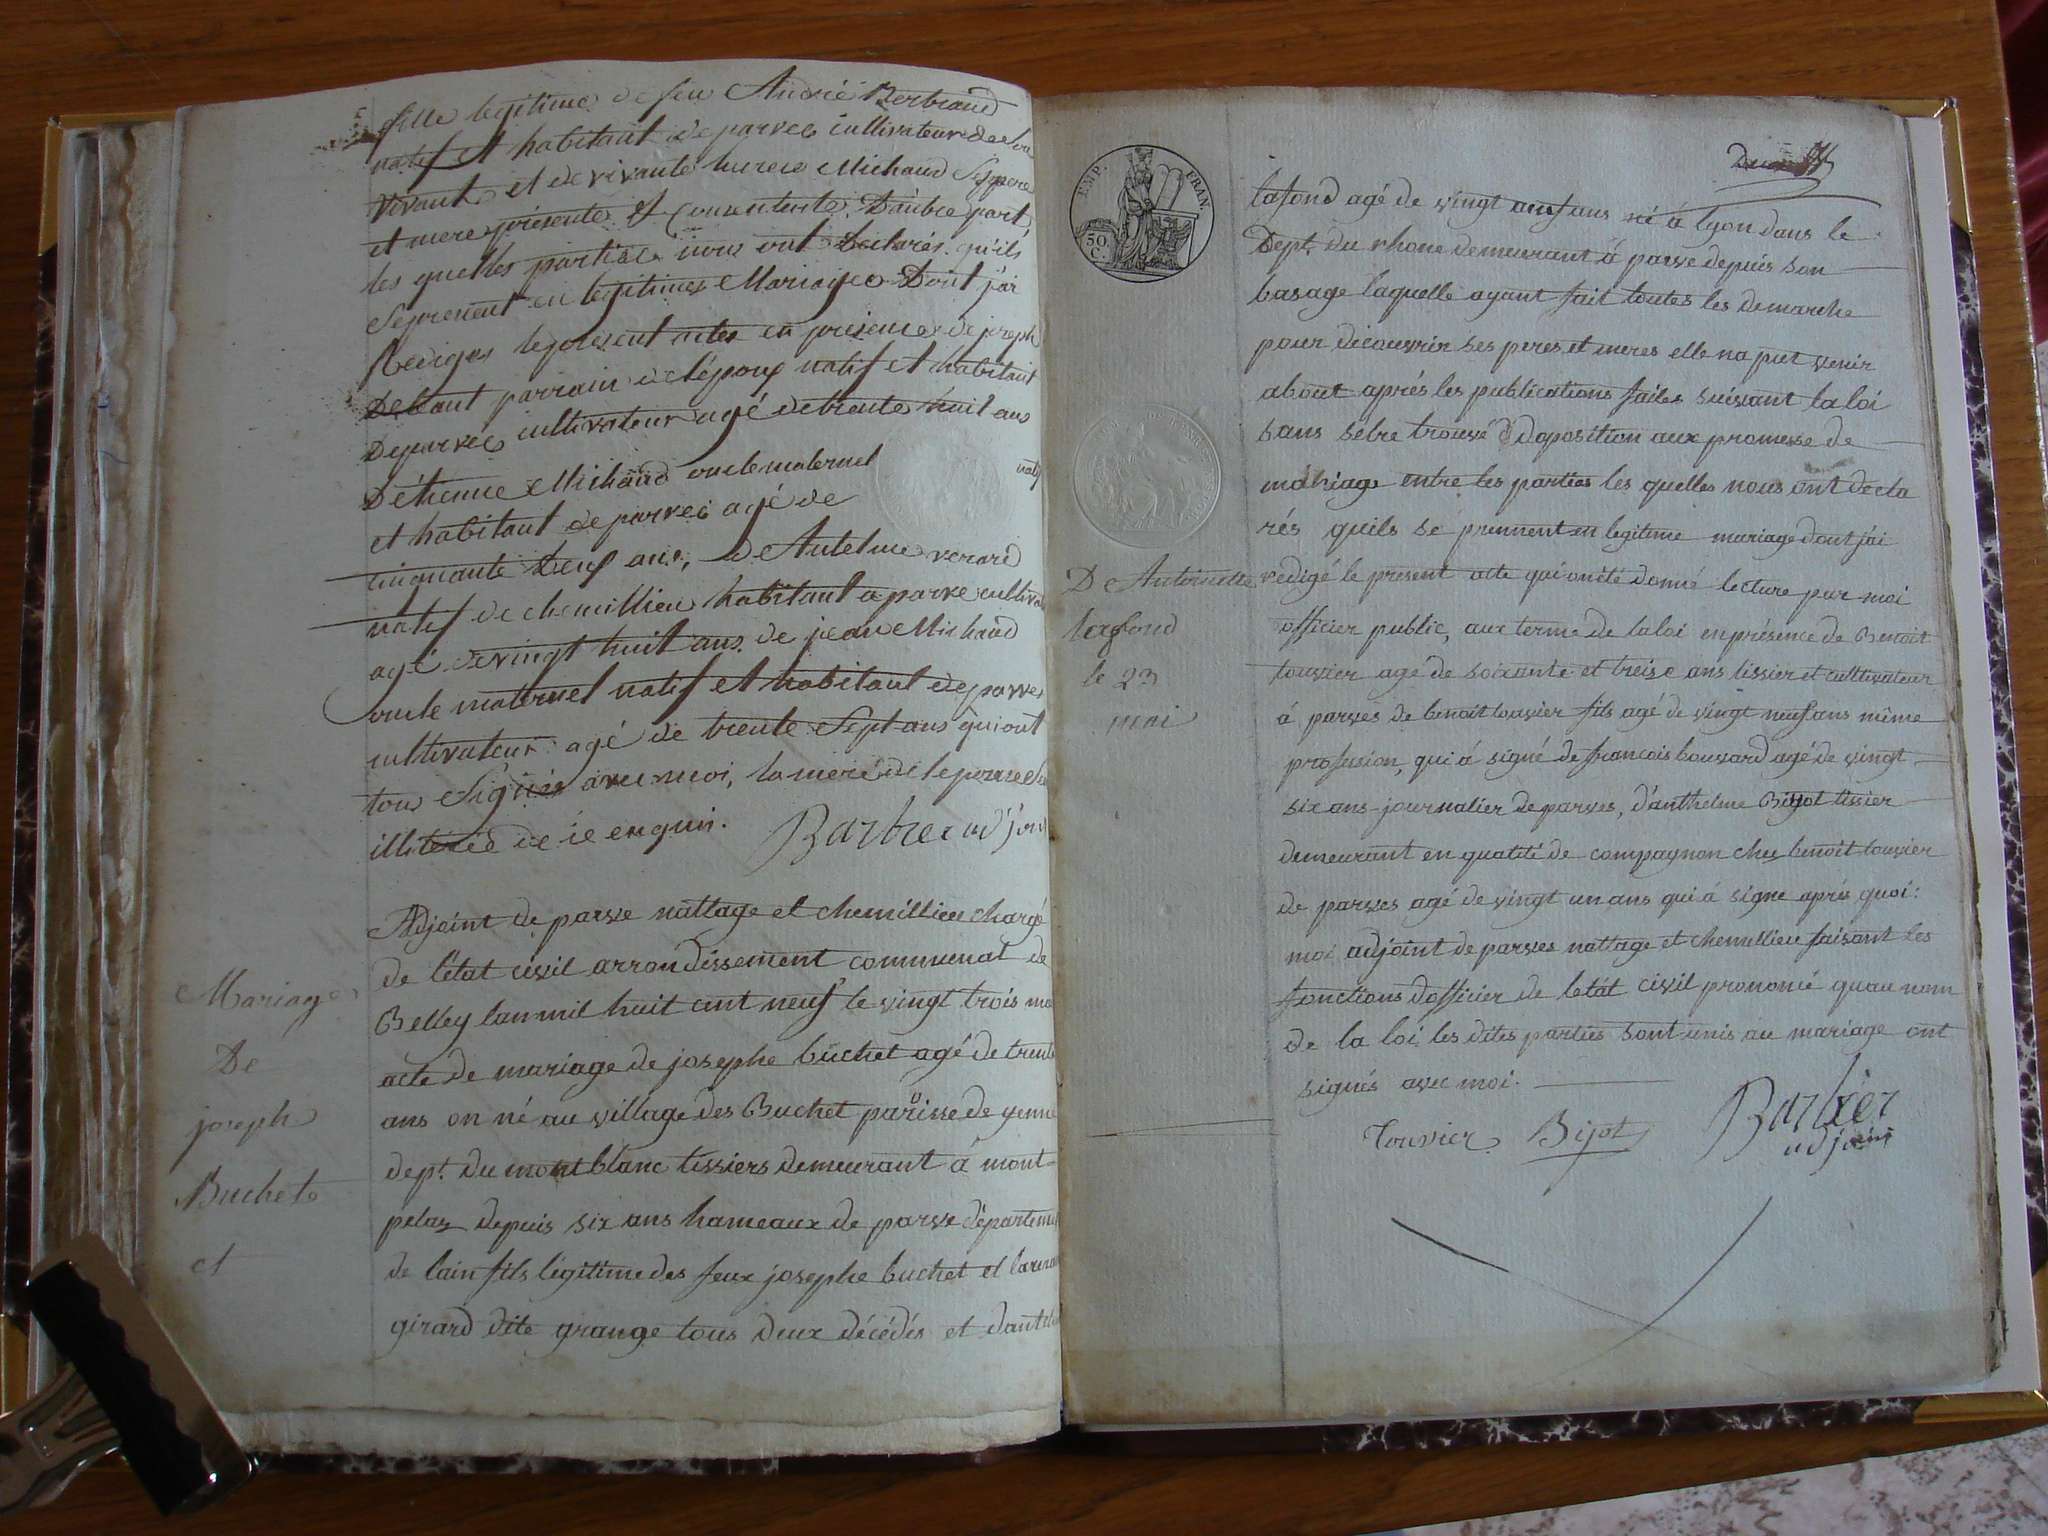 fille legitime de feu André Bertrand
natif et habitant de parves cultivateur de son
vivant et de vivante Michaud Ses pere
et mere présente et Consentente D'autre part,
les quelles parties nous ont Declarés qu'ils
Seprenent en legitimes Mariages Dont j'ai
Rediges le present actes en présence de joseph
Debaut parrain de lépoux natif et habitant
De parves cultivateur agé de trente huit ans
D'étienne Michaud oncle maternel natif
et habitant de parves agé de
cinquante Deux ans, de Antelme verard
natif de chemillieu habitant a parve cultiva
agé de vingt huit ans de jean Michaud
oncle maternel natif et habitant de parves
cultivateur agé de trente Sept ans qui ont
tous Signés avec moi, la mere de lepouse
illitered de ce enquir. Barbier adjoin
Adjoint de parve nattage et chemillieu chargé
de l'état civil arrondissement communal de
Belley lan mil huit cent neuf le vingt trois mai
acte de mariage de josephe buchet agé de trente
ans on né au village des Buchet paroisse de yenne
dept. du mont blanc tissiers demeurant à mont-
pelaz depuis six ans hameaux de parve départeme
de lain fils légitime des feux josephe buchet et
girard dite grange tous deux décédés et dant
Mariage
De
joseph
Buchet
et
EMP. FRAN.
50 C.
lafond agé de vingt ans né à lyon dans le
Dept. du rhone demeurant à parve depuis son
basage laquelle ayant fait toutes les demarche
pour découvrir ses peres et meres elle na put venir
about aprés les publications faites suivant la loi
sans setre trouvé doposition aux promesse de
mariage entre les parties les quelles nous ont decla
rés quils se prennent en legitime mariage dont jai
redigé le present acte qui onété donné lecture par moi
officier public, aux terme de la loi en présence de Benoit
touvier agé de soixante et treise ans tissier et cultivateur
á parves de benoit touvier fils agé de vingt neuf ans même
profession, qui á signé de francois bouvard agé de vingt
six ans journalier de parves, d'anthelme Bijot tissier
demeurant en qualité de compagnon chez benoit touvier
de parves agé de vingt un ans qui á signe aprés quoi:
moi adjoint de parves nattage et chemillieu faisant les
fonctions d'officier de létát civil prononcé quau nom
de la loi les dites parties sont unis au mariage ont
signés avec moi.
Touvier Bijot Barbier
adjoint
D Antoinette
lafond
le 23
mai